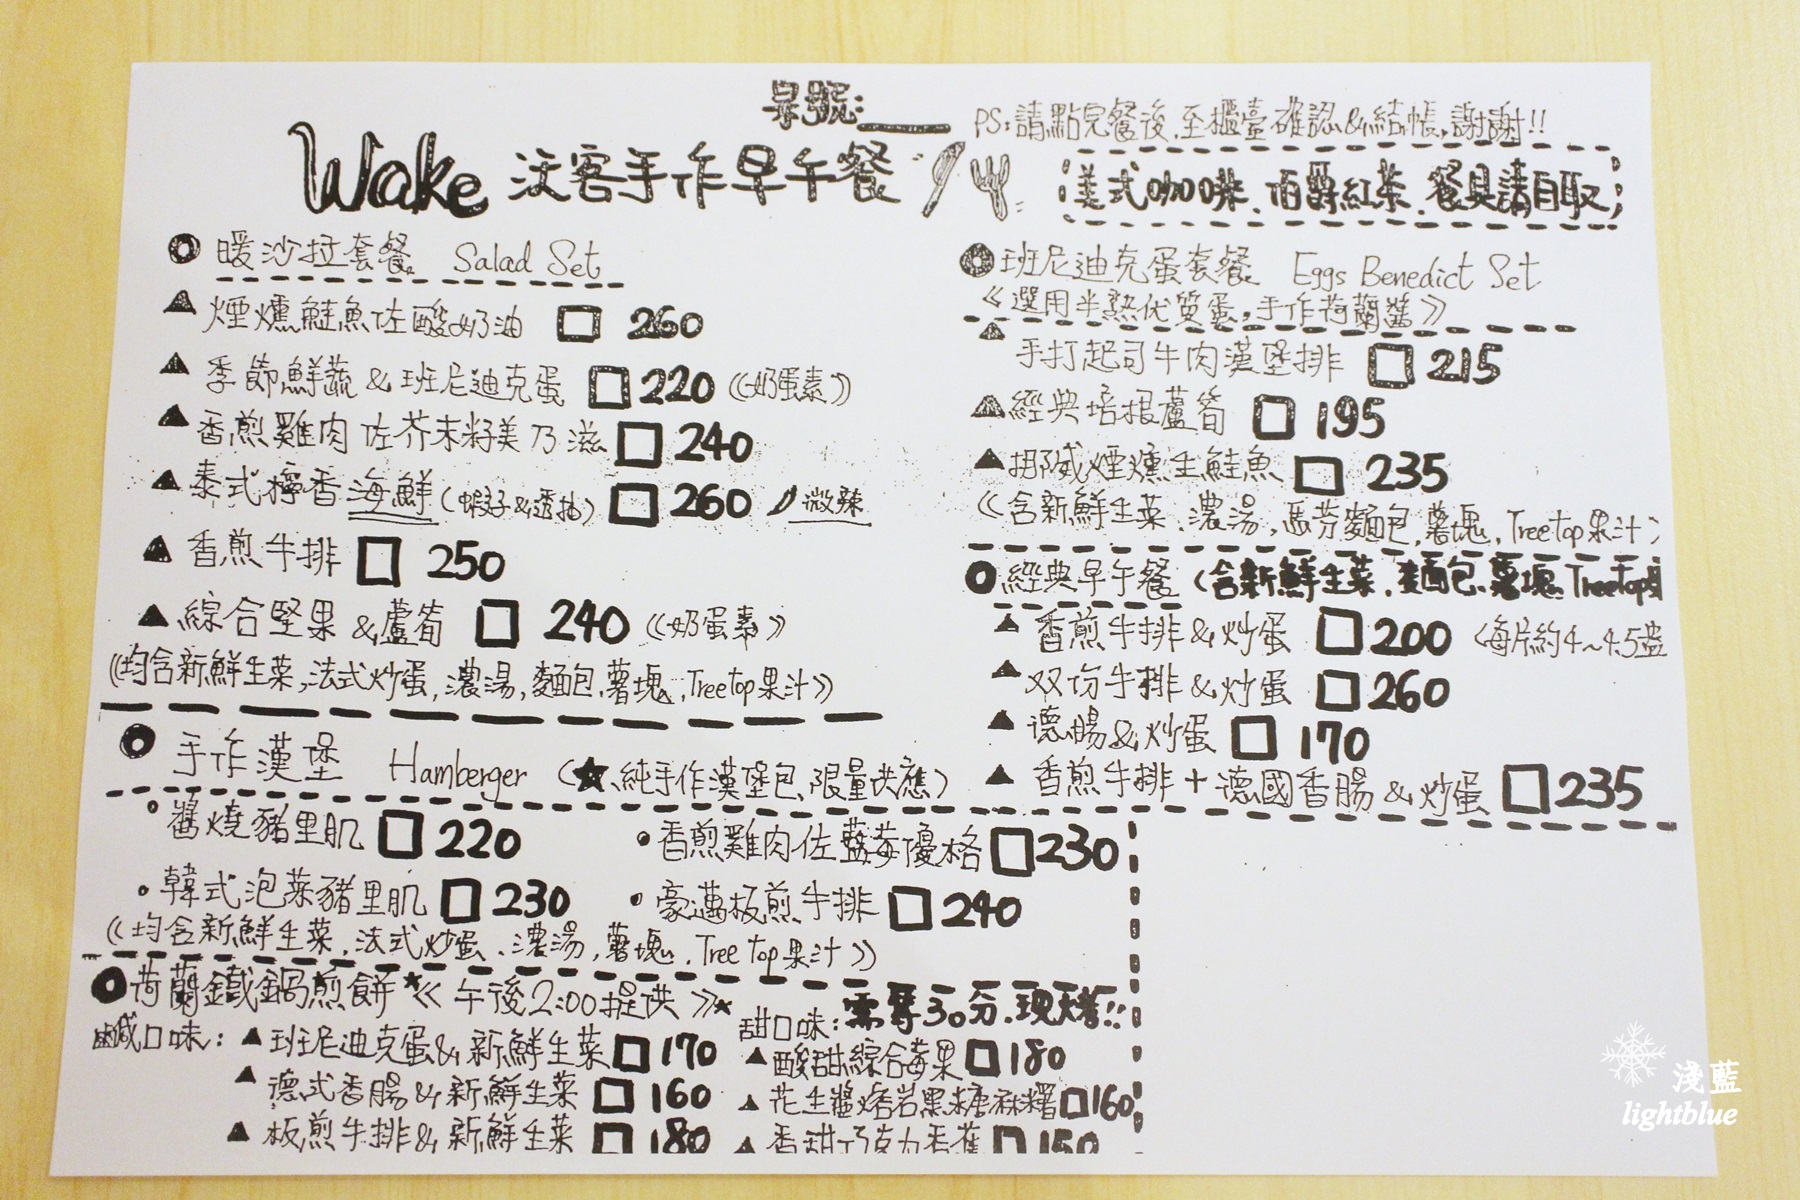 桌號:
PS:請點完餐後,至櫃臺確認&結帳,謝謝!!
Wake 沃客手作早午餐
美式咖啡、伯爵紅茶、餐具請自取
暖沙拉套餐 Salad Set
煙燻鮭魚佐酸奶油 260
季節鮮蔬&班尼迪克蛋 220 《奶蛋素》
香煎雞肉佐芥末籽美乃滋 240
泰式檸香海鮮(蝦子&透抽) 260 微辣
香煎牛排 250
綜合堅果&蘆筍 240 《奶蛋素》
《均含新鮮生菜,法式炒蛋,濃湯,麵包,薯塊,Treetop果汁》
手作漢堡 Hamberger (★純手作漢堡包,限量供應)
醬燒豬里肌 220
香煎雞肉佐藍莓優格 230
韓式泡菜豬里肌 230
豪邁板煎牛排 240
《均含新鮮生菜,法式炒蛋、濃湯,薯塊,Tree top果汁》
荷蘭鐵鍋煎餅★《午後2:00提供》★
需等30分,現烤!!
鹹口味:
班尼迪克蛋&新鮮生菜 170
德式香腸&新鮮生菜 160
板煎牛排&新鮮生菜 180
甜口味:
酸甜綜合莓果 180
花生醬烤岩黑糖麻糬 160
香甜巧克力香蕉 150
班尼迪克蛋套餐 Eggs Benedict Set
《選用半熟优質蛋,手作荷蘭醬》
手打起司牛肉漢堡排 215
經典培根蘆筍 195
挪威煙燻生鮭魚 235
《含新鮮生菜、濃湯,馬芬麵包,薯塊,Treetop果汁》
經典早午餐 (含新鮮生菜,麵包,薯塊 Treetop
香煎牛排&炒蛋 200 《每片約4~4.5盎
双份牛排&炒蛋 260
德腸&炒蛋 170
香煎牛排+德國香腸&炒蛋 235
淺藍
lightblue